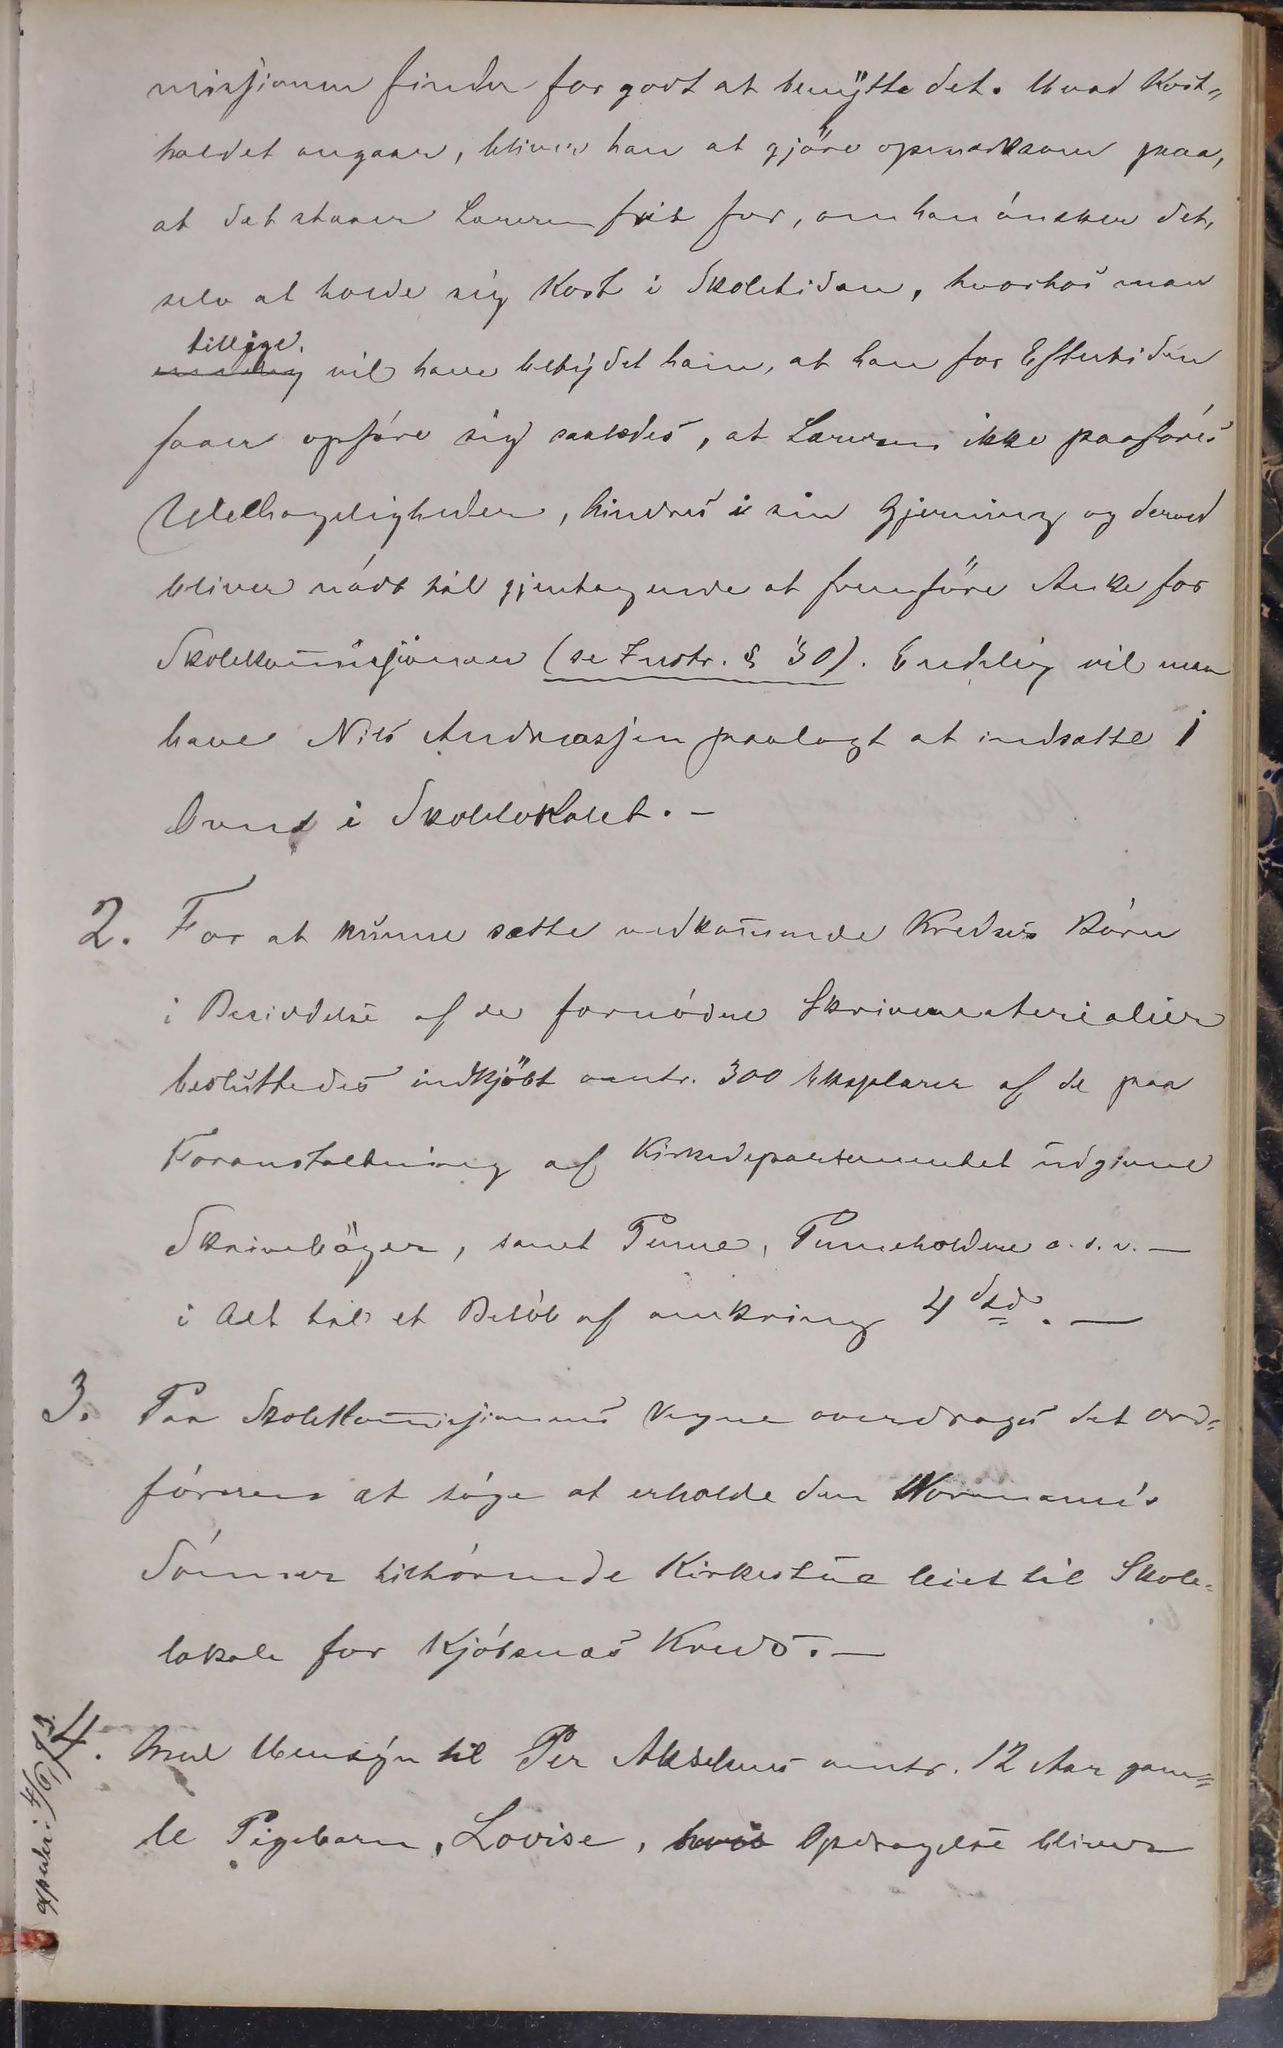 missionen finder for godt at benytte det. Hvad Kost-
holdet angaar, bliver han at gjøre opmærksom paa,
at det staaer Læreren frit for, om han ønsker det,
selv at holde sig Kost i Skoletiden, hvorhos man
tillige
vil have betydet ham, at han for Eftertiden
faaer opføre sig saaledes, at Læreren ikke paaføres
Ubehageligheder, hindres i sin Gjerning og derved
bliver nødt til gjentagende at fremføre Anke for
Skolekommissionen (se Instr. § 30). Endelig vil man
have Nils Andreassen paalagt at indsætte 1
i Skolelokalet. -
2. For at kunne sætte vedkommende Kredses Børn
i Besiddelse af de fornødne Skrivematerialier
besluttedes indkjøbt omtr. 300 Exsplarer af de paa
Foranstaltning af Kirkedepartementet udgivne
Skrivebøger, samt Penne, Penneholdere o.s.v. -
i Alt til et Beløb af omkring 4 Spd. -
3. Paa Skolekommissionens Vegne overdroges det Ord-
føreren at søge at erholde den Normann's
Sønner tilhørende Kirkestue leiet til Skole-
lokale for Kjøbsnæs Kreds. -
4. Med Hensyn til Per Akselsens omtr. 12 Aar gam-
le Pigebarn, Lovise, hvis Opdragelse bliver
exped: 4/6 73.